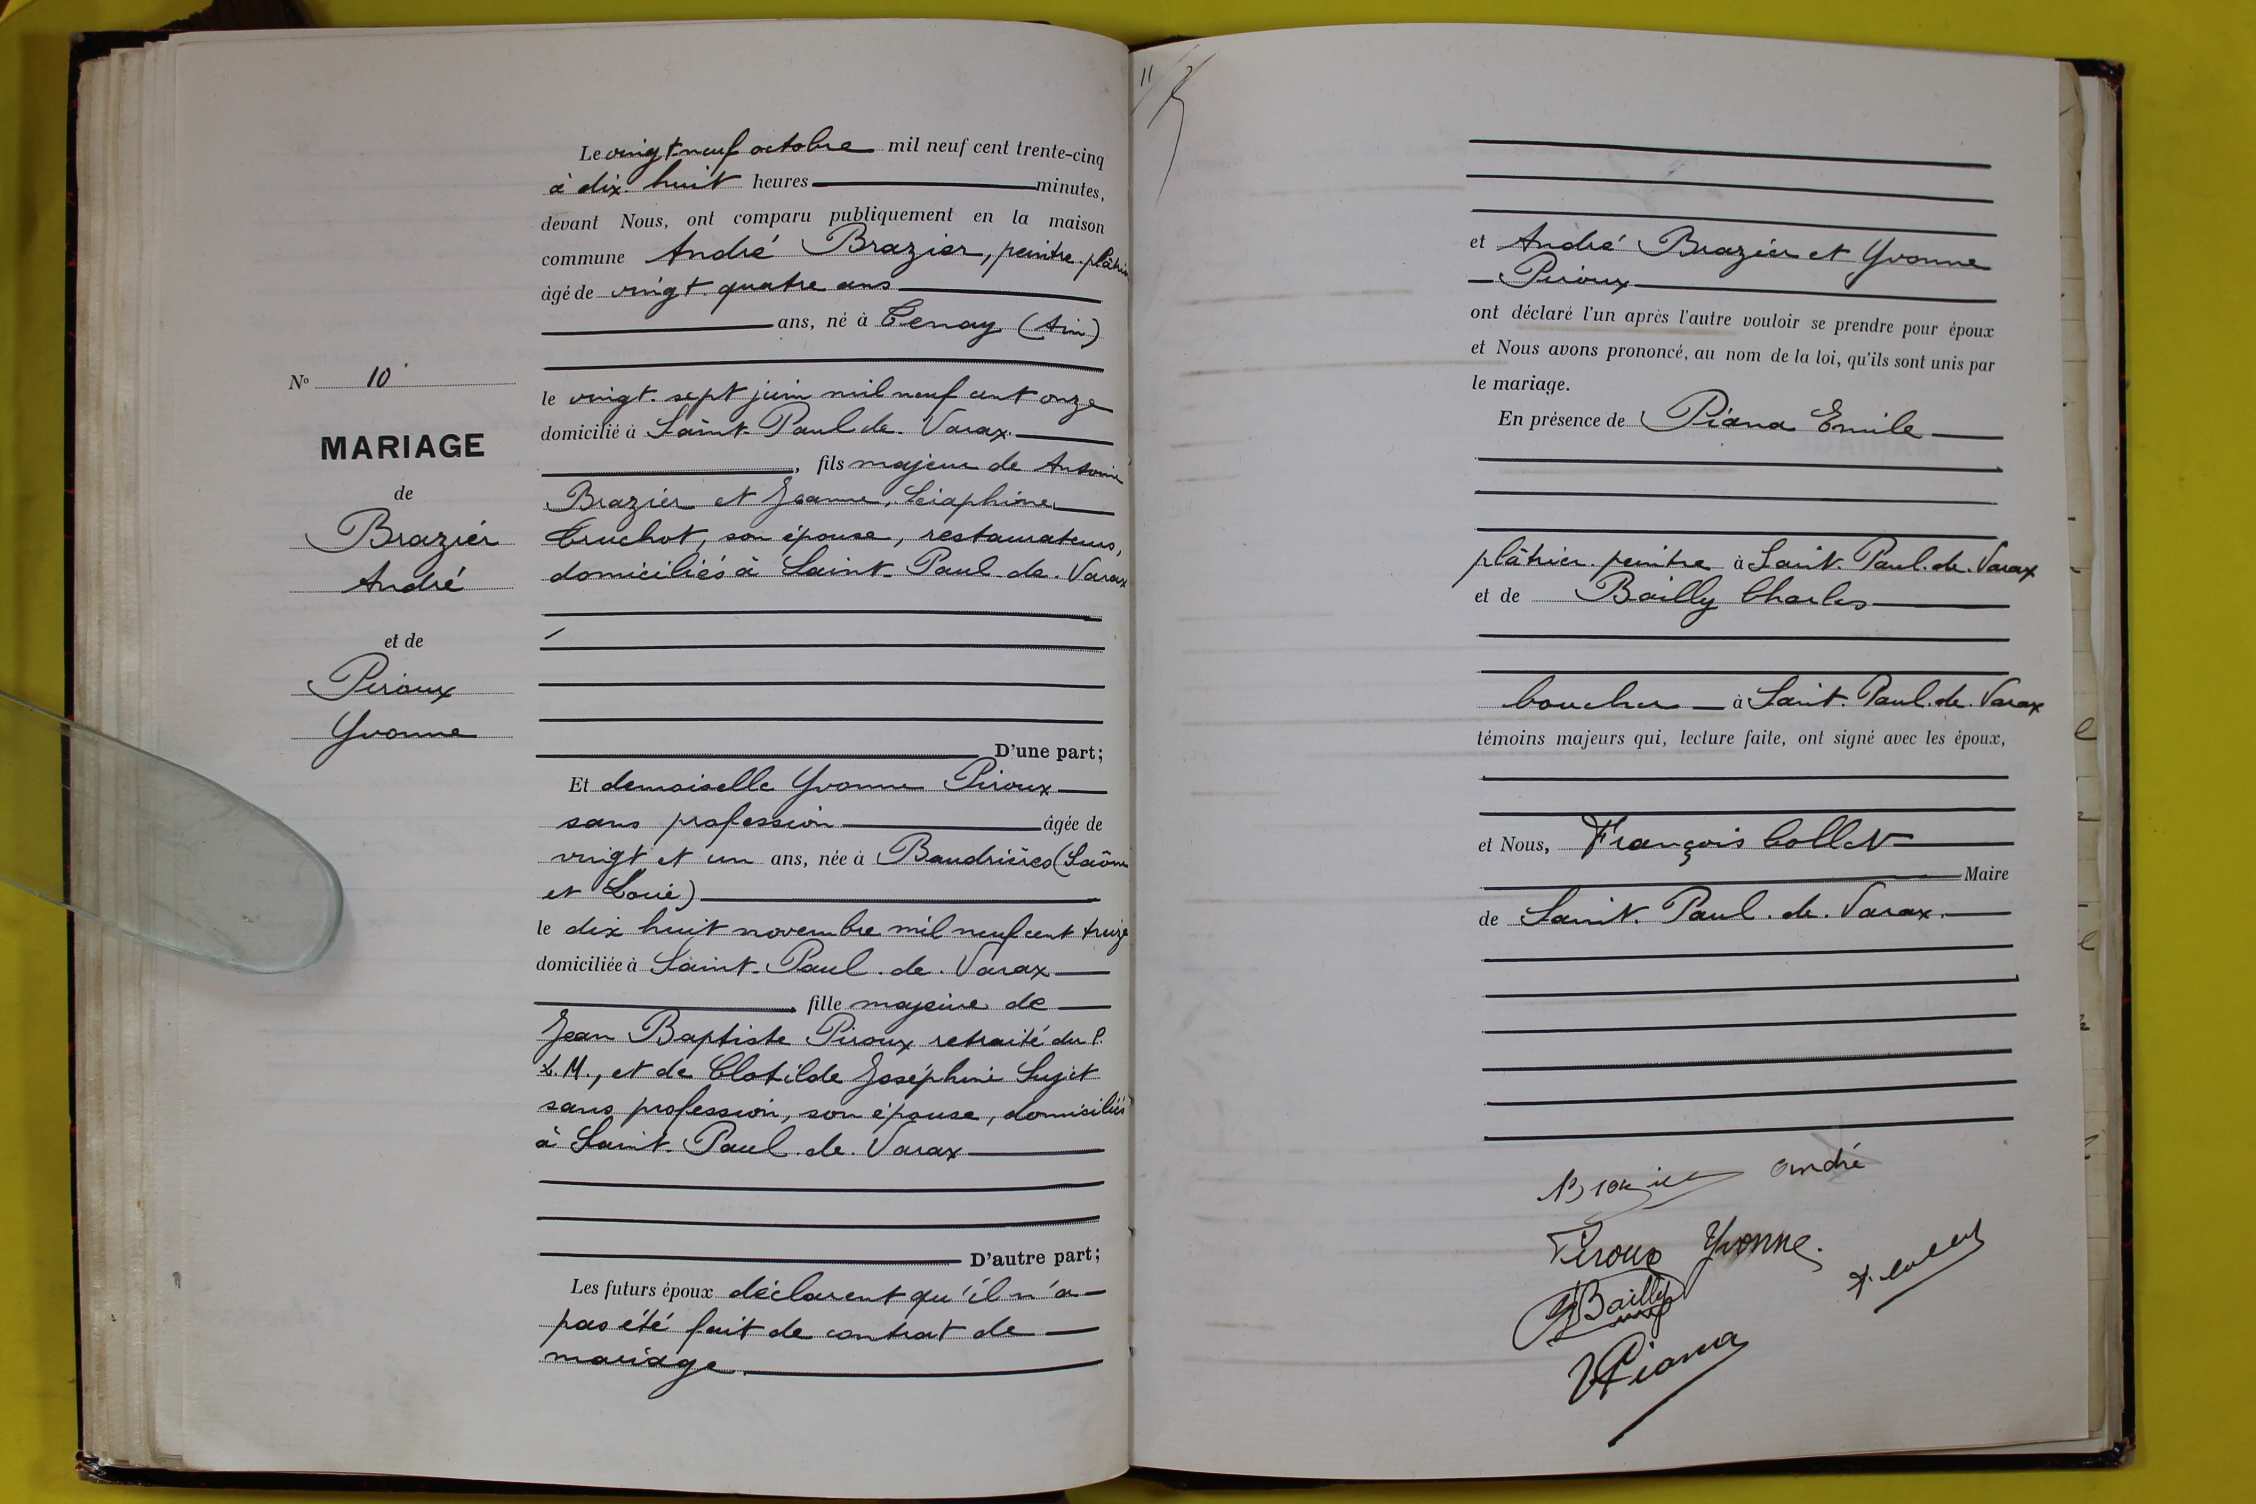 Le vingt neuf octobre mil neuf cent trente-cinq
à dix. huit heures minutes,
devant Nous, ont comparu publiquement en la maison
commune André Brazier, peintre. plâtrier
âgé de vingt. quatre ans
ans, né à Tenay (Ain)
le vingt. sept juin mil neuf cent onze
domicilié à Saint. Paul de. Varax.
, fils majeur de Antoine
Brazier et Jeanne, Séraphine
Truchot, son épouse, restaurateurs,
domiciliés à Saint. Paul. de. Varax
D'une part;
Et demoiselle Yvonne Piroux
sans profession âgée de
vingt et un ans, née à Baudrières (Saône
et Loire)
le dix huit novembre mil neuf cent treize
domiciliée à Saint. Paul. de. Varax
, fille majeure de
Jean Baptiste Piroux retraité du P.
L. M., et de Clotilde Joséphine Sujet
sans profession, son épouse, domiciliés
à Saint. Paul. de. Varax
D'autre part;
Les futurs époux déclarent qu'il n'a
pas été fait de contrat de
mariage.
No 10
MARIAGE
de
Brazier
André
et de
Piroux
Yvonne
11
et André Brazier et Yvonne
Piroux
ont déclaré l'un après l'autre vouloir se prendre pour époux
et Nous avons prononcé, au nom de la loi, qu'ils sont unis par
le mariage.
En présence de Piana Emile
plâtrier. peintre à Saint. Paul. de. Varax
et de Bailly Charles
boucher à Saint. Paul. de. Varax
témoins majeurs qui, lecture faite, ont signé avec les époux,
et Nous, François Collet
Maire
de Saint. Paul. de. Varax.
Brazier andré
Piroux Yvonne.
F. Collet
Bailly
Piana